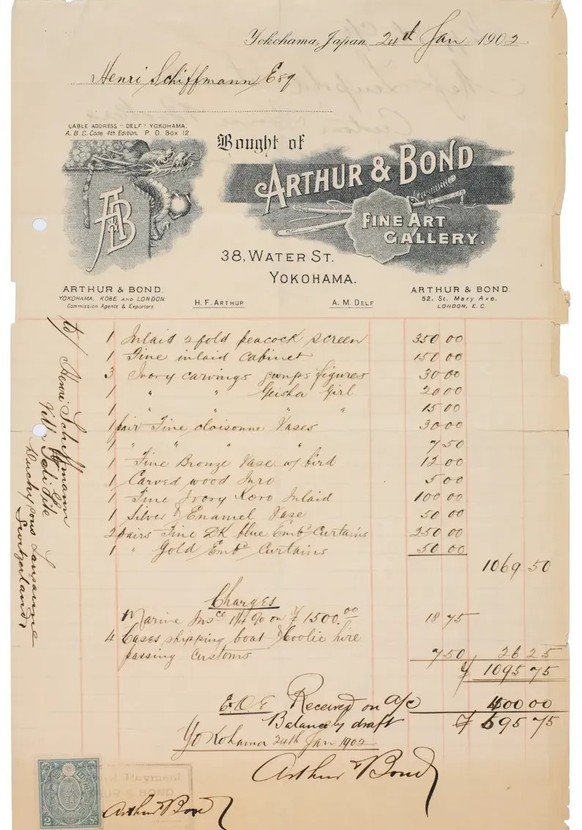 Yokohama, Japan, 24th Jan 1902
Henri Schiffmann Esq
CABLE ADDRESS "DELF" YOKOHAMA.
A.B.C. Code 4th Edition, P. O. Box 12
Bought of
ARTHUR & BOND
FINE ART
GALLERY.
AB
38, WATER ST.
YOKOHAMA.
ARTHUR & BOND.
YOKOHAMA, KOBE AND LONDON
Commission Agents & Exporters
H. F. ARTHUR
A. M. DELF
ARTHUR & BOND.
52. St. Mary Axe.
LONDON, E.C.
1 Inlaid 2 fold peacock screen 350 00
1 Fine inlaid cabinet 150 00
3 Ivory carvings groups figures 30 00
1 " " Geisha Girl 20 00
1 " " " 15 00
1 pair Fine cloisonne Vases 30 00
1 " " " " 7 50
1 Fine Bronze Vase w/ bird 12 00
1 Carved wood Inro 5 00
1 Fine Ivory Koro Inlaid 100 00
1 Silver & Enamel Vase 50 00
2 pairs Fine DK blue Emb'd Curtains 250 00
1 " Gold Emb'd Curtains 50 00
1069 50
Charges
Marine Insce 1¼ % on ¥ 1500.00 18 75
4 Cases shipping boat & Coolie hire
passing customs 7 50 26 25
¥ 1095 75
E.O.E Received on a/c 400 00
Balance by draft ¥ 695 75
Yokohama 24th Jan 1902
Arthur & Bond
Arthur & Bond
to/ Henri Schiffmann
Villa
Lausanne
Switzerland
2 Sn